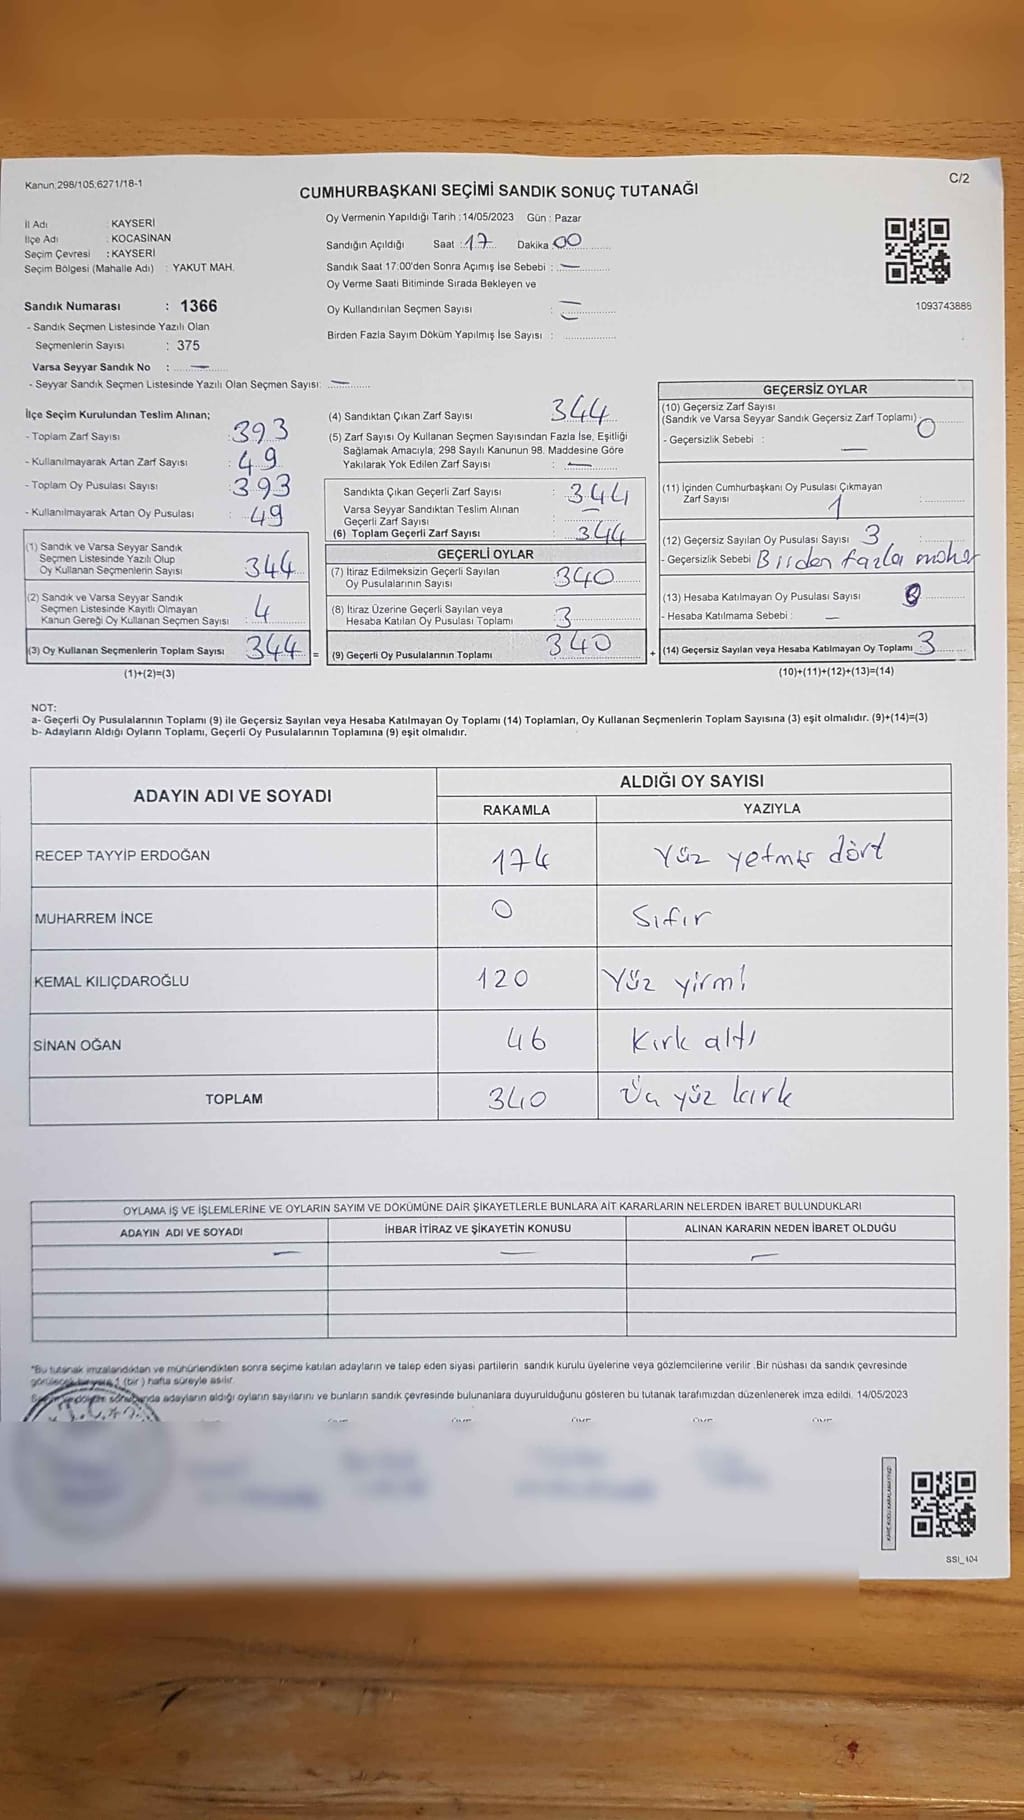 Kanun:298/105;6271/18-1
C/2
CUMHURBAŞKANI SEÇİMİ SANDIK SONUÇ TUTANAĞI
İl Adı : KAYSERİ
İlçe Adı : KOCASİNAN
Seçim Çevresi : KAYSERİ
Seçim Bölgesi (Mahalle Adı) : YAKUT MAH.
Sandık Numarası : 1366
- Sandık Seçmen Listesinde Yazılı Olan
Seçmenlerin Sayısı : 375
Varsa Seyyar Sandık No : —
- Seyyar Sandık Seçmen Listesinde Yazılı Olan Seçmen Sayısı: —
Oy Vermenin Yapıldığı Tarih :14/05/2023 Gün : Pazar
Sandığın Açıldığı Saat :17 Dakika 00
Sandık Saat 17:00'den Sonra Açımış İse Sebebi : —
Oy Verme Saati Bitiminde Sırada Bekleyen ve
Oy Kullandırılan Seçmen Sayısı : —
Birden Fazla Sayım Döküm Yapılmış İse Sayısı :
1093743888
İlçe Seçim Kurulundan Teslim Alınan;
- Toplam Zarf Sayısı : 393
- Kullanılmayarak Artan Zarf Sayısı : 49
- Toplam Oy Pusulası Sayısı : 393
- Kullanılmayarak Artan Oy Pusulası : 49
(1) Sandık ve Varsa Seyyar Sandık
Seçmen Listesinde Yazılı Olup
Oy Kullanan Seçmenlerin Sayısı 344
(2) Sandık ve Varsa Seyyar Sandık
Seçmen Listesinde Kayıtlı Olmayan
Kanun Gereği Oy Kullanan Seçmen Sayısı : 4
(3) Oy Kullanan Seçmenlerin Toplam Sayısı 344 =
(1)+(2)=(3)
(4) Sandıktan Çıkan Zarf Sayısı 344
(5) Zarf Sayısı Oy Kullanan Seçmen Sayısından Fazla İse, Eşitliği
Sağlamak Amacıyla, 298 Sayılı Kanunun 98. Maddesine Göre
Yakılarak Yok Edilen Zarf Sayısı : —
Sandıkta Çıkan Geçerli Zarf Sayısı : 344
Varsa Seyyar Sandıktan Teslim Alınan
Geçerli Zarf Sayısı : —
(6) Toplam Geçerli Zarf Sayısı : 344
GEÇERLİ OYLAR
(7) İtiraz Edilmeksizin Geçerli Sayılan
Oy Pusulalarının Sayısı 340
(8) İtiraz Üzerine Geçerli Sayılan veya
Hesaba Katılan Oy Pusulası Toplamı 3
(9) Geçerli Oy Pusulalarının Toplamı 340 +
GEÇERSİZ OYLAR
(10) Geçersiz Zarf Sayısı
(Sandık ve Varsa Seyyar Sandık Geçersiz Zarf Toplamı) : 0
- Geçersizlik Sebebi : —
(11) İçinden Cumhurbaşkanı Oy Pusulası Çıkmayan
Zarf Sayısı 1
(12) Geçersiz Sayılan Oy Pusulası Sayısı 3
- Geçersizlik Sebebi Birden fazla mühür
(13) Hesaba Katılmayan Oy Pusulası Sayısı
- Hesaba Katılmama Sebebi : —
(14) Geçersiz Sayılan veya Hesaba Katılmayan Oy Toplamı 3
(10)+(11)+(12)+(13)=(14)
NOT:
a- Geçerli Oy Pusulalarının Toplamı (9) ile Geçersiz Sayılan veya Hesaba Katılmayan Oy Toplamı (14) Toplamları, Oy Kullanan Seçmenlerin Toplam Sayısına (3) eşit olmalıdır. (9)+(14)=(3)
b- Adayların Aldığı Oyların Toplamı, Geçerli Oy Pusulalarının Toplamına (9) eşit olmalıdır.
ADAYIN ADI VE SOYADI
ALDIĞI OY SAYISI
RAKAMLA YAZIYLA
RECEP TAYYİP ERDOĞAN 174 Yüz yetmiş dört
MUHARREM İNCE 0 Sıfır
KEMAL KILIÇDAROĞLU 120 Yüz yirmi
SİNAN OĞAN 46 Kırk altı
TOPLAM 340 Üç yüz kırk
OYLAMA İŞ VE İŞLEMLERİNE VE OYLARIN SAYIM VE DÖKÜMÜNE DAİR ŞİKAYETLERLE BUNLARA AİT KARARLARIN NELERDEN İBARET BULUNDUKLARI
ADAYIN ADI VE SOYADI İHBAR İTİRAZ VE ŞİKAYETİN KONUSU ALINAN KARARIN NEDEN İBARET OLDUĞU
— — —
"Bu tutanak imzalandıktan ve mühürlendikten sonra seçime katılan adayların ve talep eden siyasi partilerin sandık kurulu üyelerine veya gözlemcilerine verilir. Bir nüshası da sandık çevresinde
görülecek bir yere 1 (bir) hafta süreyle asılır.
adayların aldığı oyların sayılarını ve bunların sandık çevresinde bulunanlara duyurulduğunu gösteren bu tutanak tarafımızdan düzenlenerek imza edildi. 14/05/2023
T.C.
SSI_104